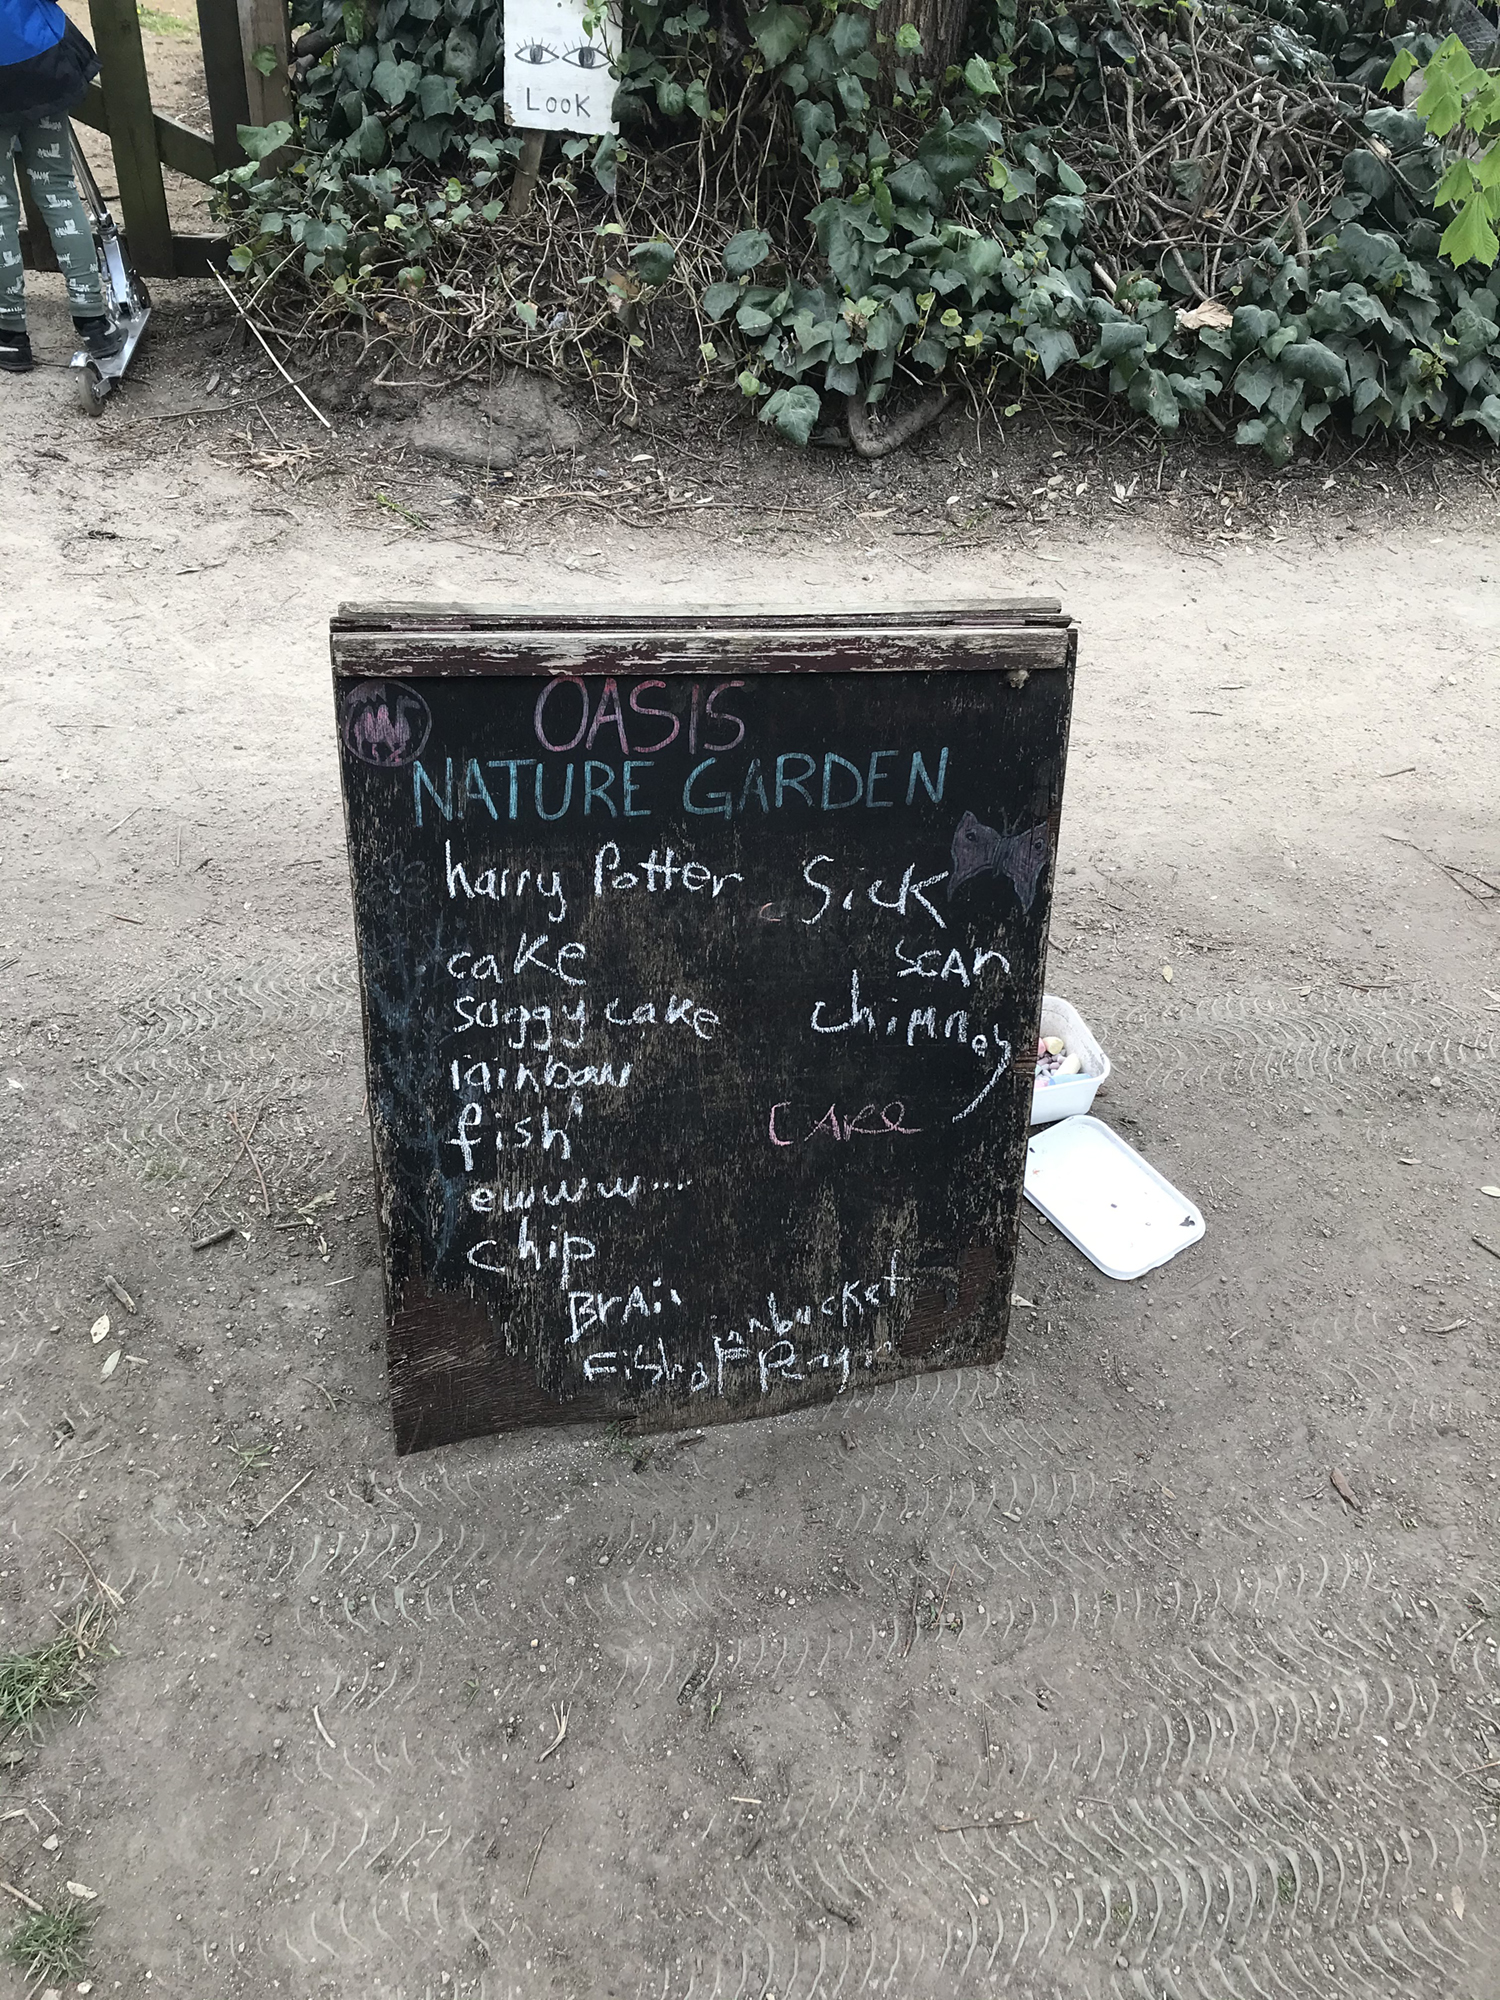 Look
OASIS
NATURE GARDEN
harry Potter
cake
soggy cake
rainbow
fish
ewww...
chip
Sick
scan
chimney
CAKe
BrAin
in bucket
Fish oF Pengin